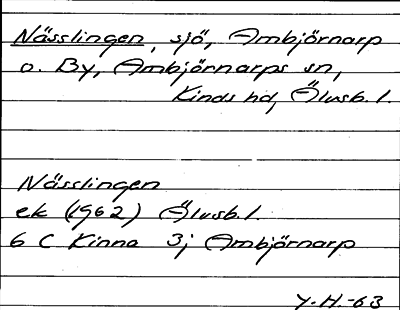 Nässlingen, sjö, Ambjörnarp
o. By, Ambjörnarps sn,
Kinds hd, Älvsb. l.
Nässlingen
ek (1962) Älvsb. l.
6 C Kinna 3j Ambjörnarp
Y.H.-63